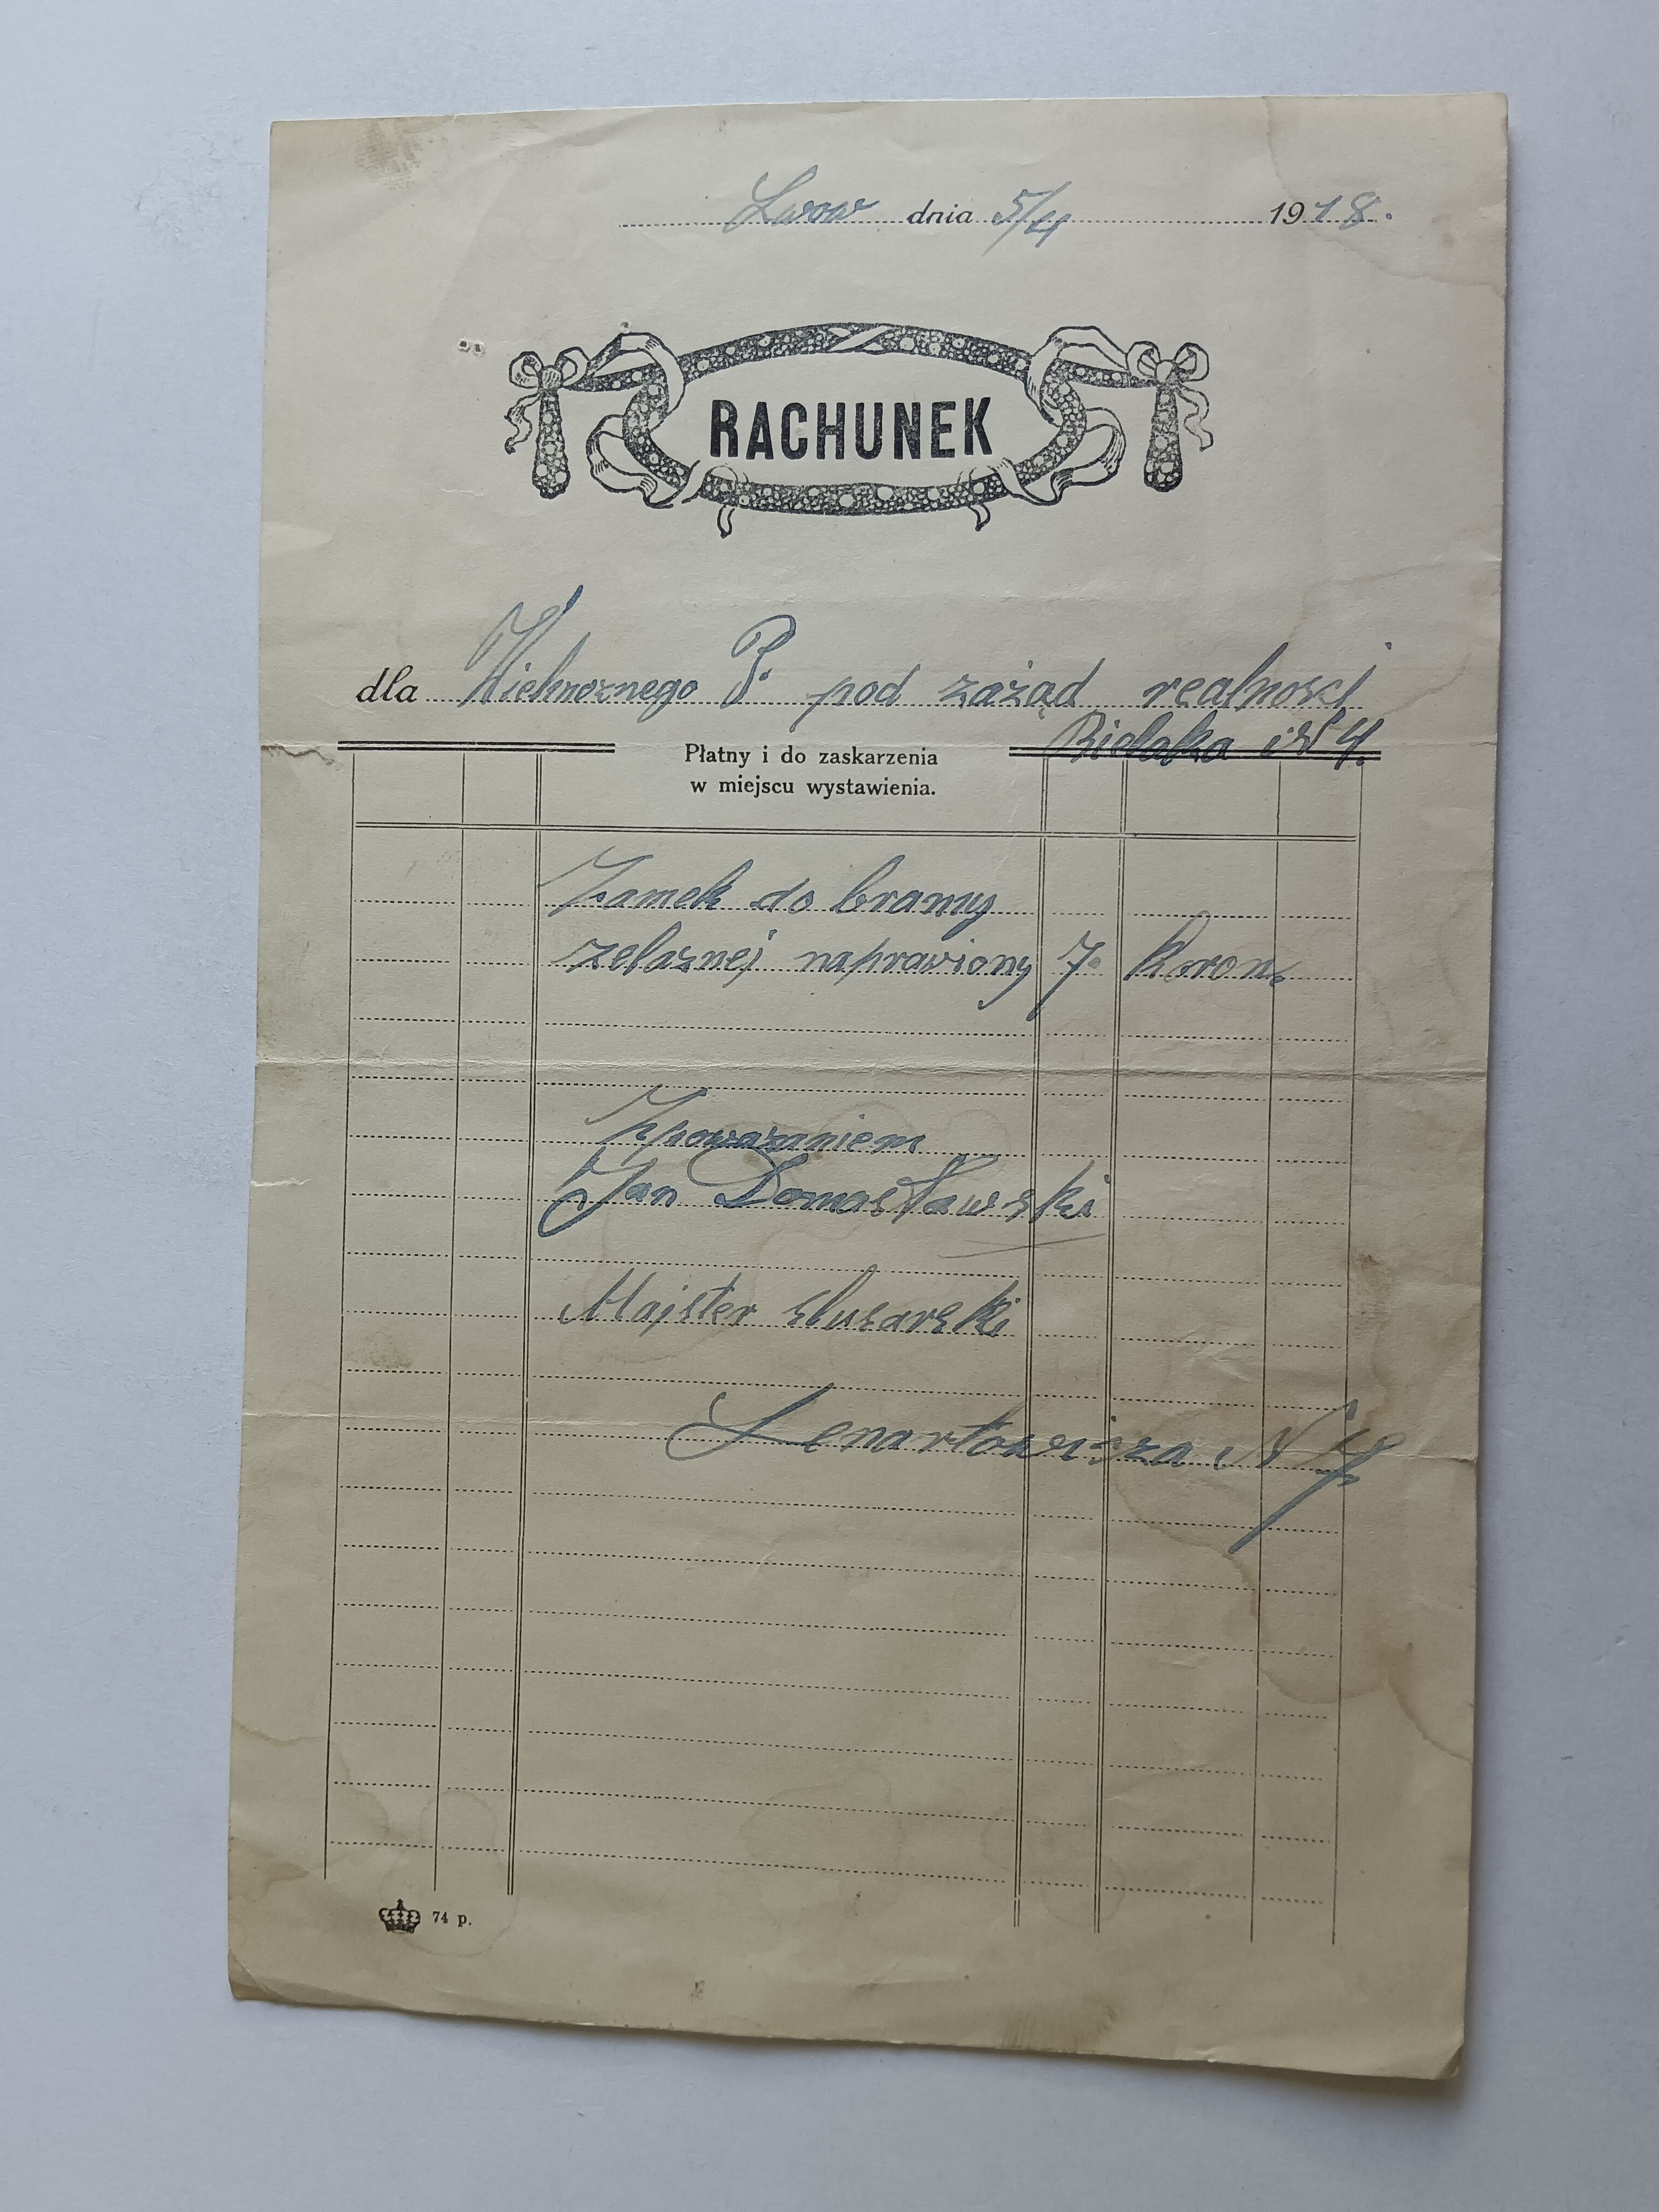 Lwow dnia 5/4 1918.
RACHUNEK
dla Wielmoznego P. pod zażąd realności
Bielska N 4.
Płatny i do zaskarzenia
w miejscu wystawienia.
Zamek do bramy
zelaznej naprawiony 7. koron.
Zpowazaniem
Jan Domasławski
Majster slusarski
Lenartowicza N
74 p.